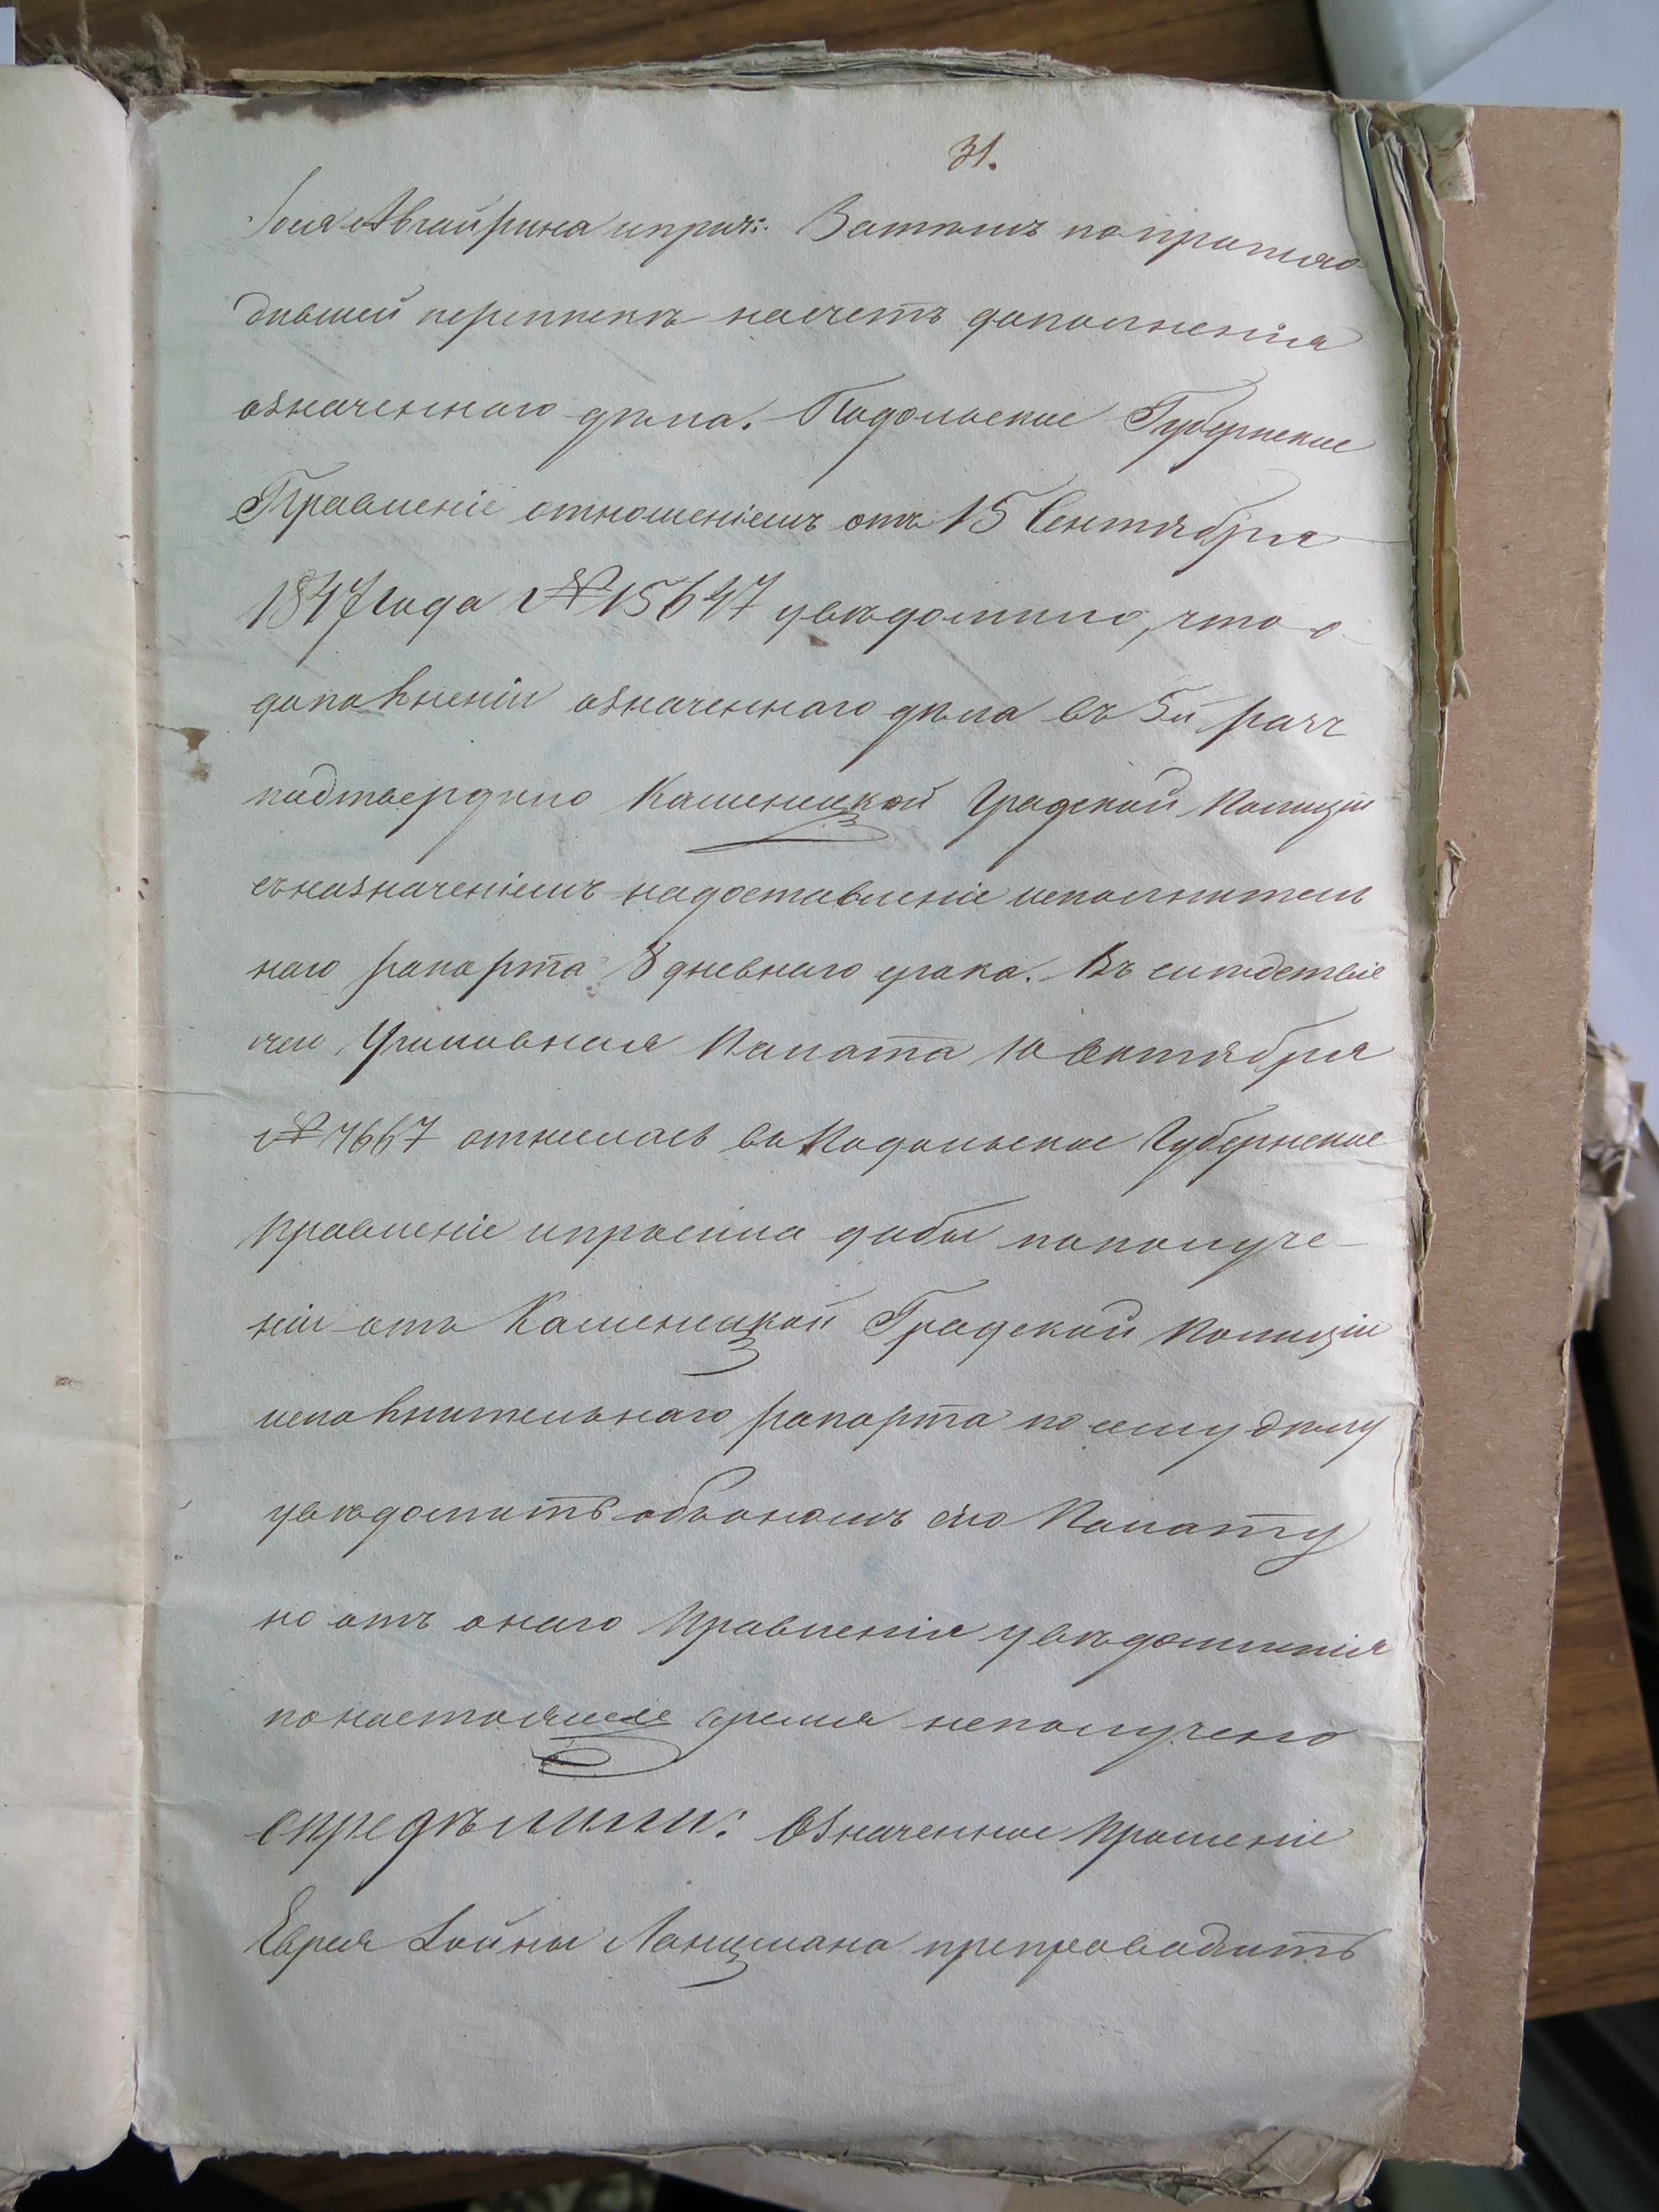 31.
Іося Авгайрина и проч: Затемъ по происхо
дившей перепискѣ насчетъ дополненія
означеннаго дѣла. Подольское Губернское
Правленіе отношеніемъ отъ 15 Сентября
1847 года № 15647 увѣдомило, что о
дополненіи означеннаго дѣла въ 5й разъ
подтверждено Каменецкой Градской Полиціи
съ назначеніемъ на доставленіе исполнитель
наго рапорта 8 дневнаго срока. Въ слѣдствіе
чего Уголовная Палата 10 Октября
№ 7667 отнеслась въ Подольское Губернское
Правленіе и просила дабы по получе-
ніи отъ Каменецкой Градской Полиціи
исполнительнаго рапорта по сему дѣлу
увѣдомить объ ономъ сію Палату
но отъ онаго Правленія увѣдомленія
по настоящее время неполучено
опредѣлили: Означенное прошеніе
Еврея Лойны Ланцмана препроводить